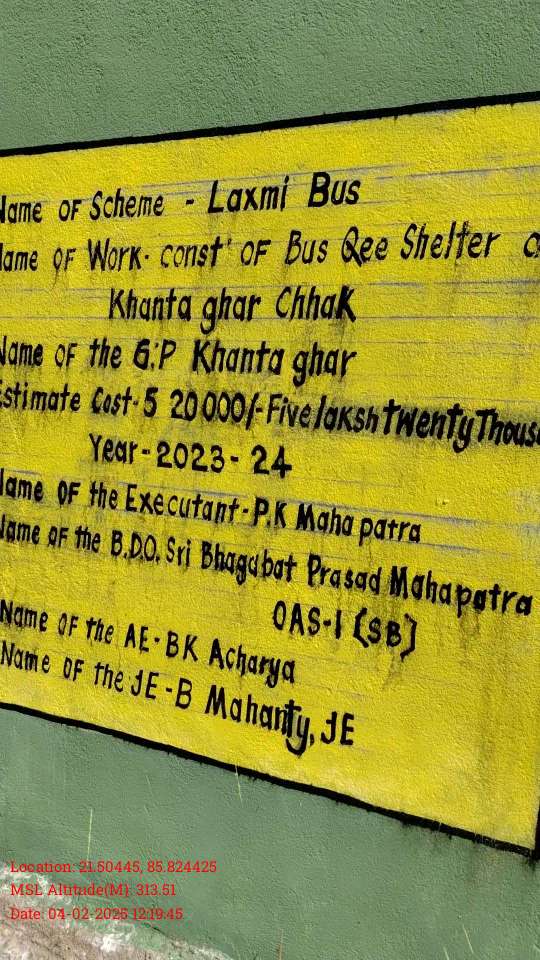 Name OF Scheme - Laxmi Bus
Name OF Work- const' OF Bus Qee Shelter a
Khanta ghar Chhak
Name OF the G.P Khanta ghar
Estimate Cost-5 20000/-Five laksh twenty Thous
Year-2023-24
Name OF the Executant-P.K Maha patra
Name OF the B.D.O. Sri Bhagabat Prasad Mahapatra
OAS-I (SB)
Name OF the AE-BK Acharya
Name OF the JE-B Mahanty, JE
Location: 21.50445, 85.824425
MSL Altitude(M): 313.51
Date: 04-02-2025 12:19:45